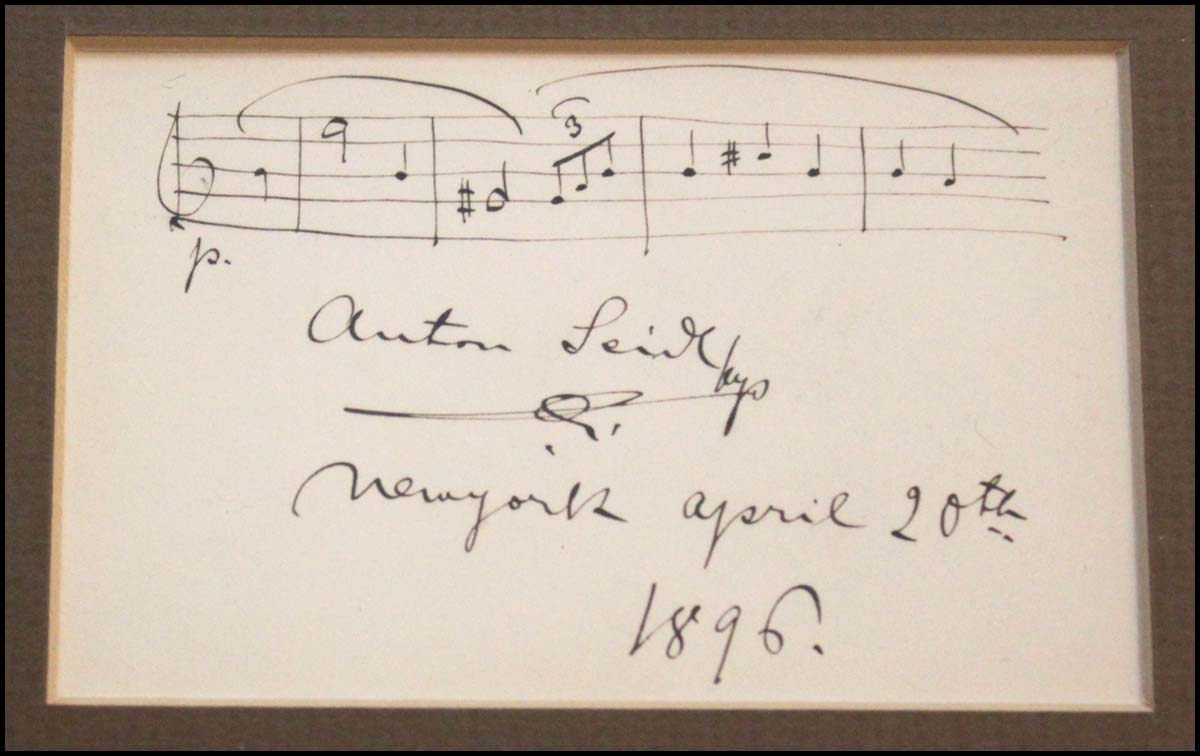 3
p.
Anton Seidl
Newyork april 20th
1896.